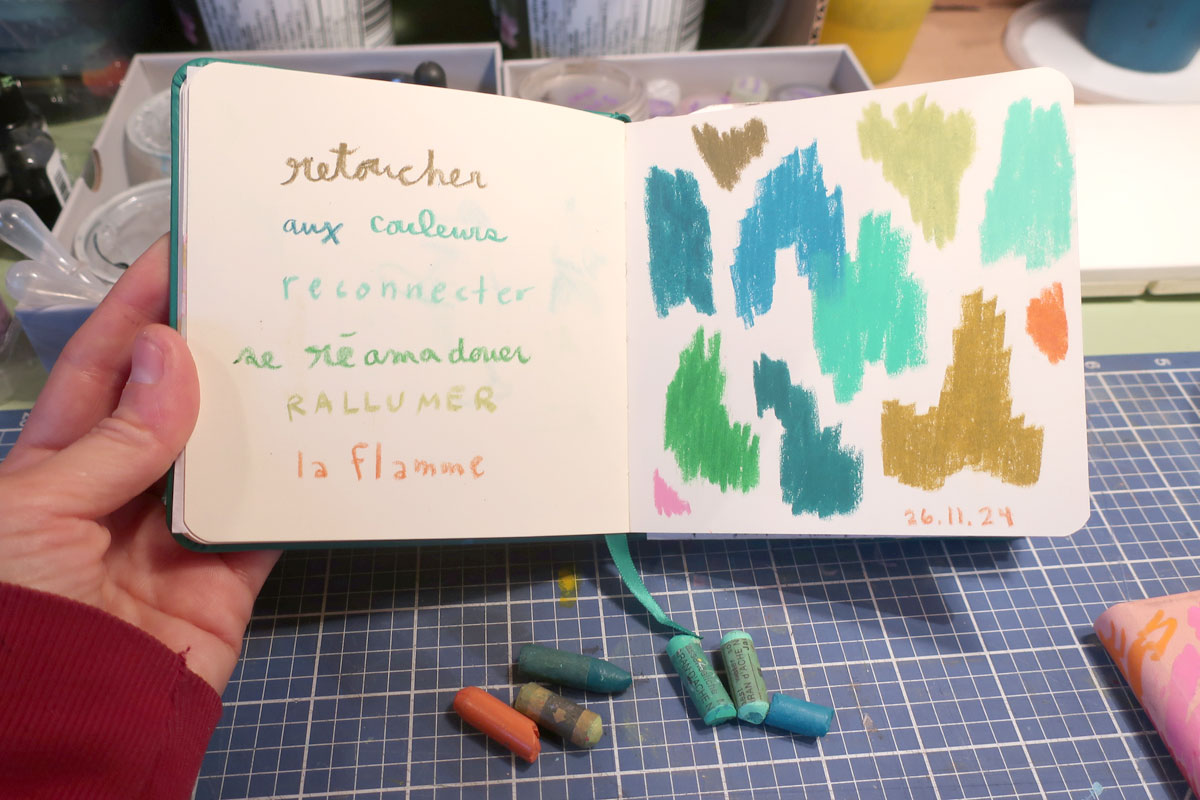 retoucher
aux couleurs
reconnecter
se réamadouer
RALLUMER
la flamme
26.11.24